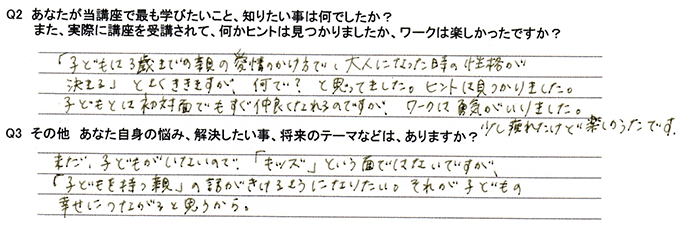 Q2 あなたが当講座で最も学びたいこと、知りたい事は何でしたか？
また、実際に講座を受講されて、何かヒントは見つかりましたか、ワークは楽しかったですか？
「子どもは3歳までの親の愛情のかけ方で、大人になった時の性格が
決まる」とよくききますが、何で？と思ってました。ヒントは見つかりました。
子どもとは初対面でもすぐ仲良くなれるのですが、ワークは勇気がいりました。
少し疲れたけど楽しかったです。
Q3 その他 あなた自身の悩み、解決したい事、将来のテーマなどは、ありますか？
まだ、子どもがいないので、「キッズ」という面ではないですが、
「子どもを持つ親」の話がきけるようになりたい。それが子どもの
幸せにつながると思うから。